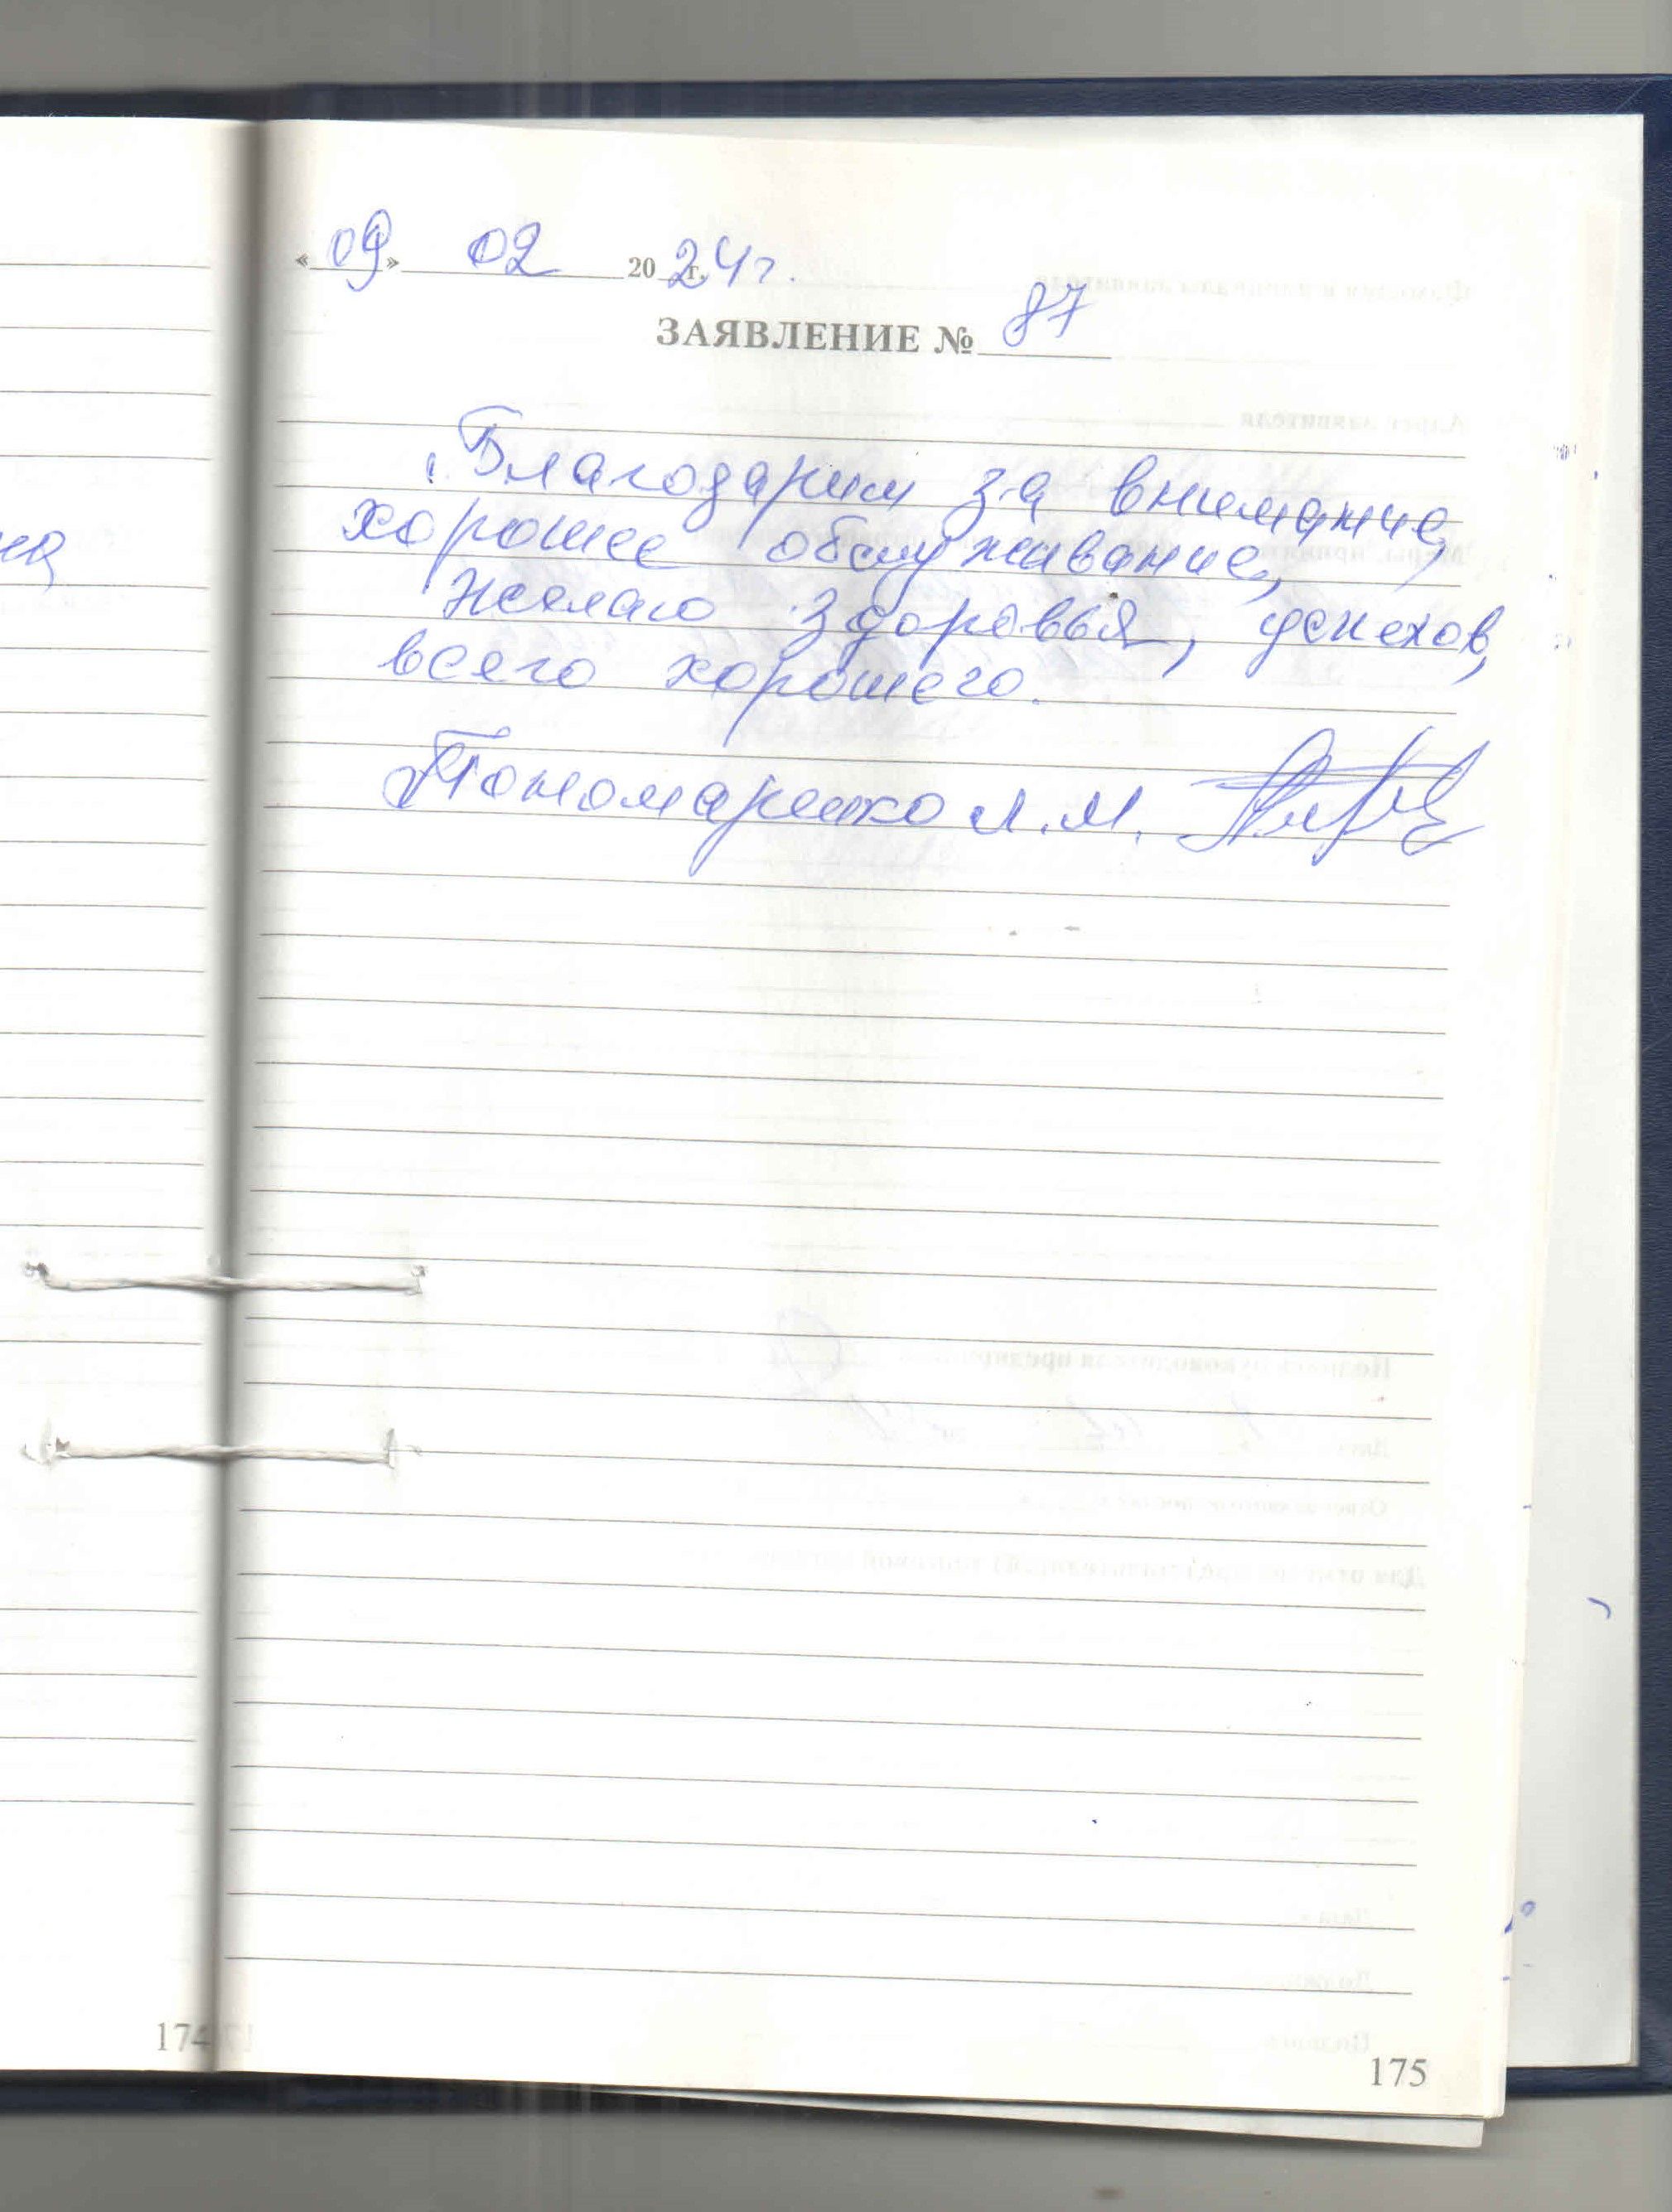 «09» 02 2024г.
ЗАЯВЛЕНИЕ № 87
Благодарим за внимание,
хорошее обслуживание,
Желаю здоровья, успехов,
всего хорошего.
Пономаренко Л.М.
174
175